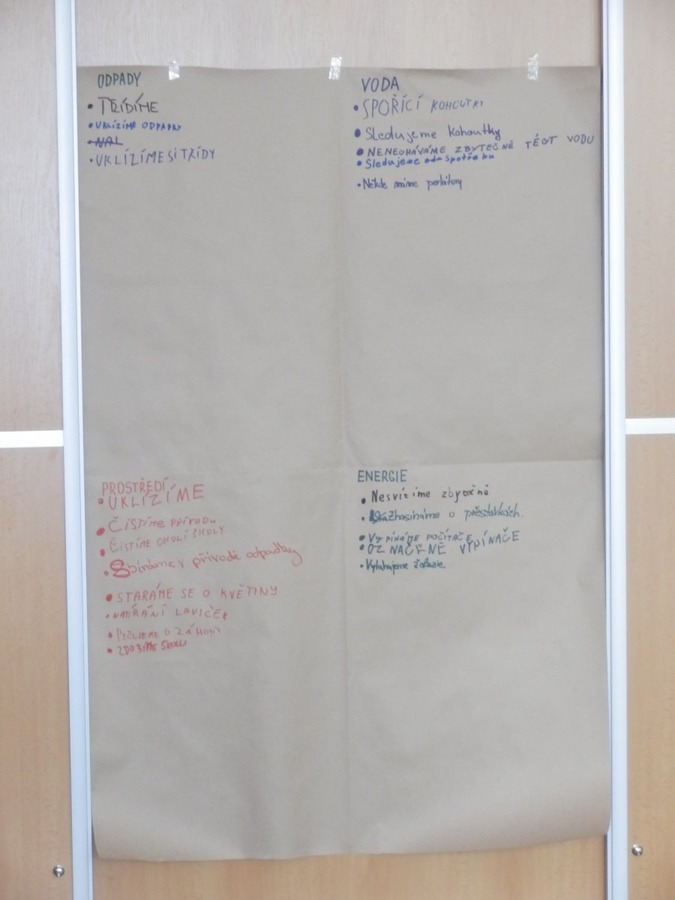 ODPADY
• TŘÍDÍME
• UKLÍZÍME ODPADKY
• NAL
• UKLÍZÍME SI TŘÍDY
VODA
• SPOŘÍCÍ KOHOUTKY
• Sledujeme kohoutky
• NENECHÁVÁME ZBYTEČNĚ TÉCT VODU
• Sledujeme spotřebu
• Někde máme perlátory
PROSTŘEDÍ
• UKLÍZÍME
• ČISTÍME PŘÍRODU
• ČISTÍME OKOLÍ ŠKOLY
• Sbíráme v přírodě odpadky
• STARÁME SE O KVĚTINY
• LAVIČEK
• O ZÁHONY
• ZDOBÍME ŠKOLU
ENERGIE
• Nesvítíme zbytečně
• zhasínáme o přestávkách.
• VYPÍNÁME POČÍTAČE
• OZNAČENÉ VYPÍNAČE
• Vytahujeme žaluzie